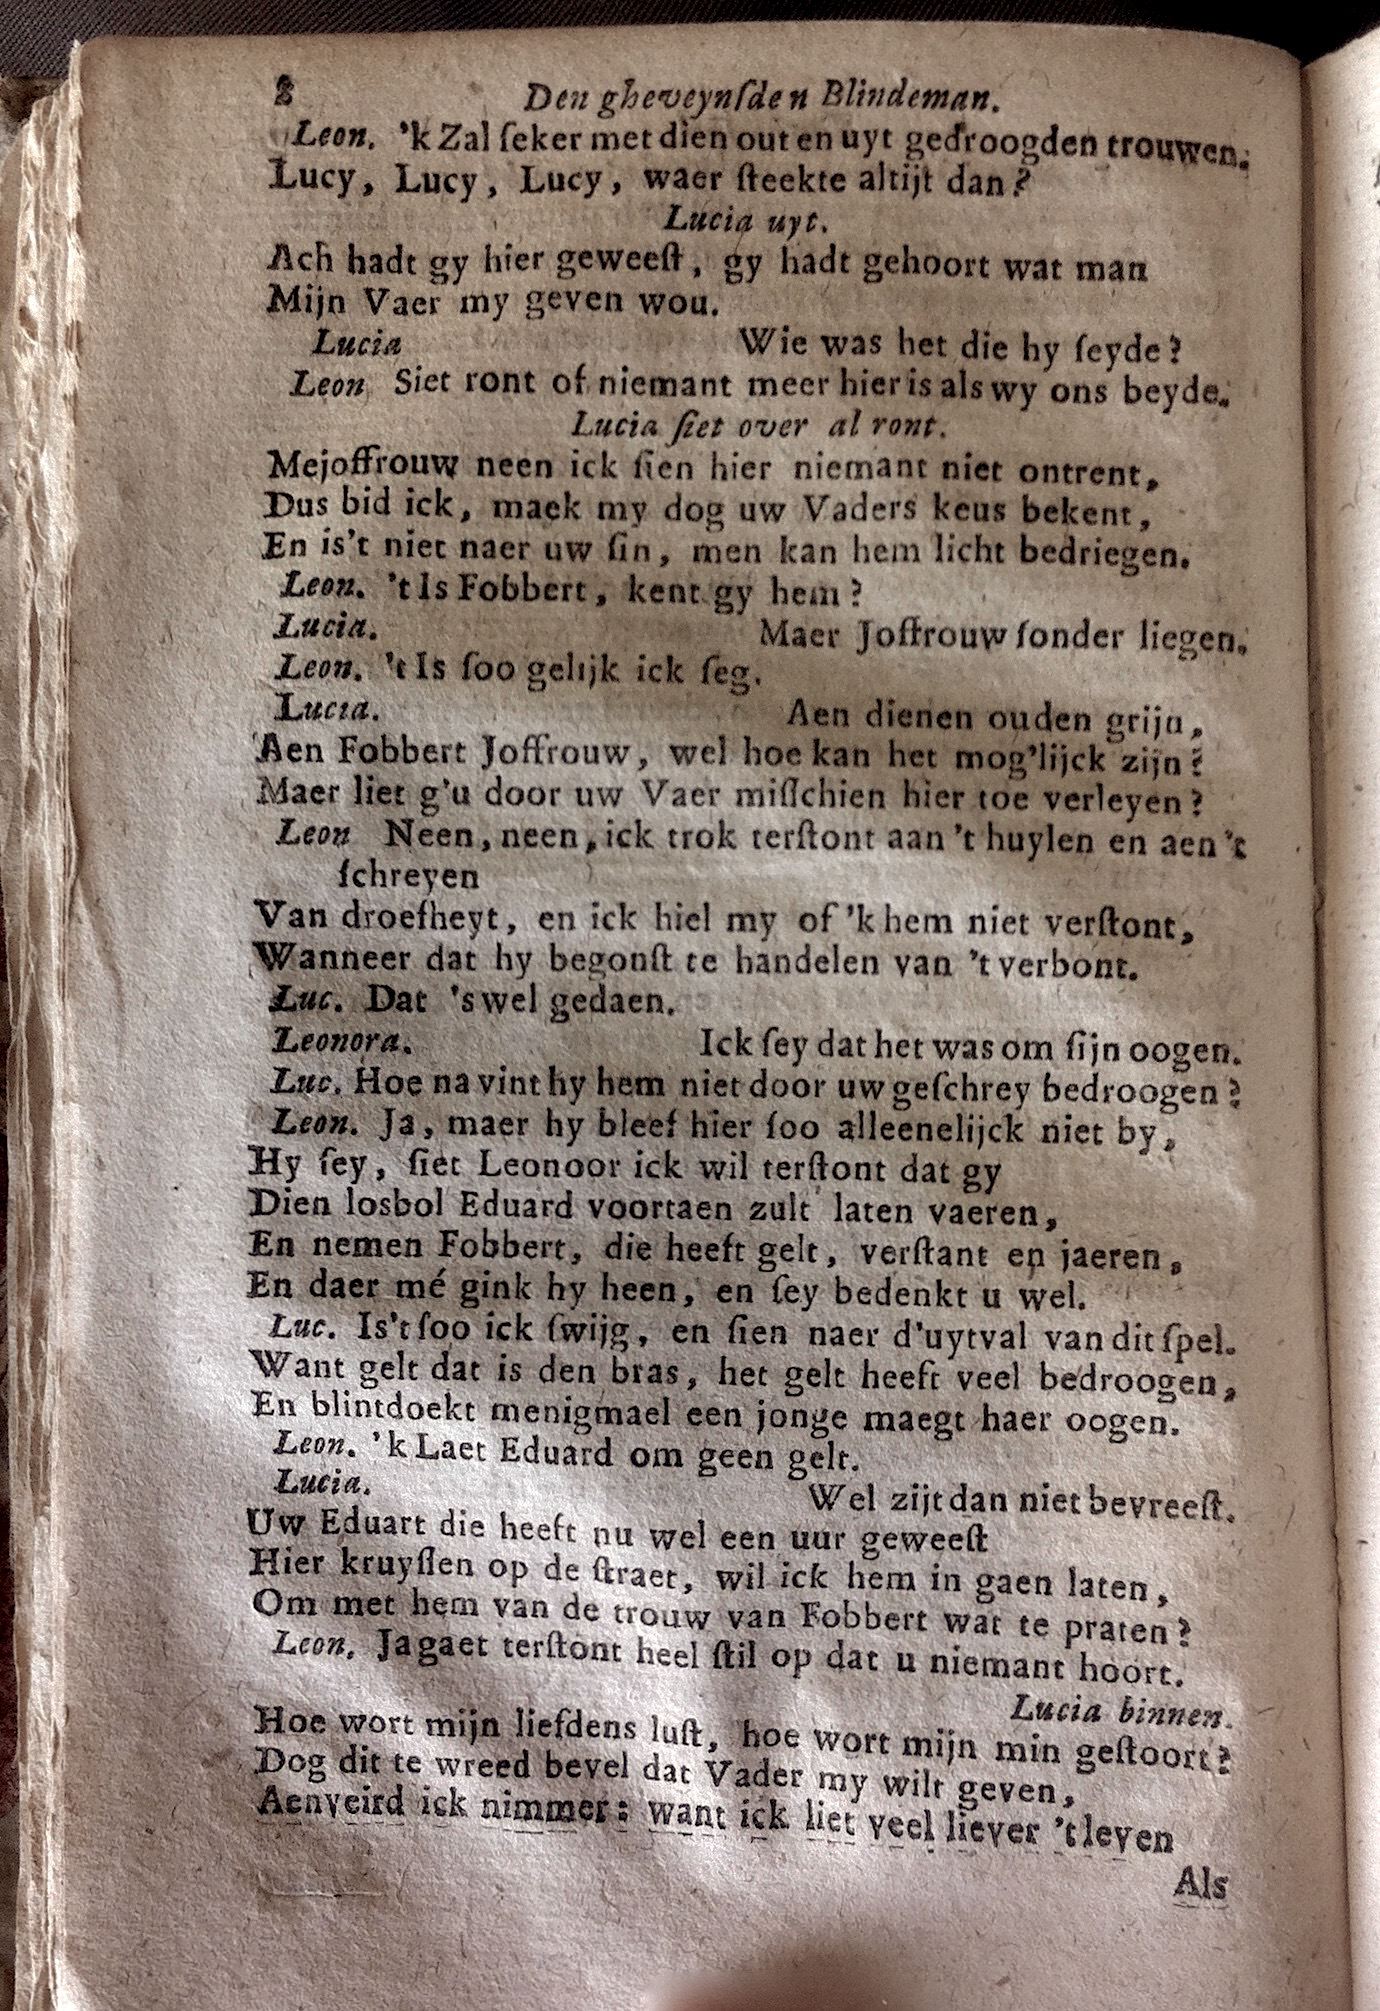 8 Den gheveynſden Blindeman.
Leon. 'k Zal ſeker met dien out en uyt gedroogden trouwen.
Lucy, Lucy, Lucy, waer ſteekte altijt dan?
Lucia uyt.
Ach hadt gy hier geweeſt, gy hadt gehoort wat man
Mijn Vaer my geven wou.
Lucia Wie was het die hy ſeyde?
Leon Siet ront of niemant meer hier is als wy ons beyde.
Lucia ſiet over al ront.
Mejoffrouw neen ick ſien hier niemant niet ontrent,
Dus bid ick, maek my dog uw Vaders keus bekent,
En is't niet naer uw ſin, men kan hem licht bedriegen.
Leon. 't Is Fobbert, kent gy hem?
Lucia. Maer Joffrouw ſonder liegen.
Leon. 't Is ſoo gelijk ick ſeg.
Lucia. Aen dienen ouden grijn,
Aen Fobbert Joffrouw, wel hoe kan het mog'lijck zijn?
Maer liet g'u door uw Vaer miſſchien hier toe verleyen?
Leon Neen, neen, ick trok terſtont aan 't huylen en aen 't
ſchreyen
Van droefheyt, en ick hiel my of 'k hem niet verſtont,
Wanneer dat hy begonſt te handelen van 't verbont.
Luc. Dat 's wel gedaen.
Leonora. Ick ſey dat het was om ſijn oogen.
Luc. Hoe na vint hy hem niet door uw geſchrey bedroogen?
Leon. Ja, maer hy bleef hier ſoo alleenelijck niet by,
Hy ſey, ſiet Leonoor ick wil terſtont dat gy
Dien losbol Eduard voortaen zult laten vaeren,
En nemen Fobbert, die heeft gelt, verſtant en jaeren,
En daer mé gink hy heen, en ſey bedenkt u wel.
Luc. Is't ſoo ick ſwijg, en ſien naer d'uytval van dit ſpel.
Want gelt dat is den bras, het gelt heeft veel bedroogen,
En blintdoekt menigmael een jonge maegt haer oogen.
Leon. 'k Laet Eduard om geen gelt.
Lucia. Wel zijt dan niet bevreeſt.
Uw Eduart die heeft nu wel een uur geweeſt
Hier kruyſſen op de ſtraet, wil ick hem in gaen laten,
Om met hem van de trouw van Fobbert wat te praten?
Leon. Ja gaet terſtont heel ſtil op dat u niemant hoort.
Lucia binnen.
Hoe wort mijn liefdens luſt, hoe wort mijn min geſtoort?
Dog dit te wreed bevel dat Vader my wilt geven,
Aenveird ick nimmer: want ick liet veel liever 't leven
Als